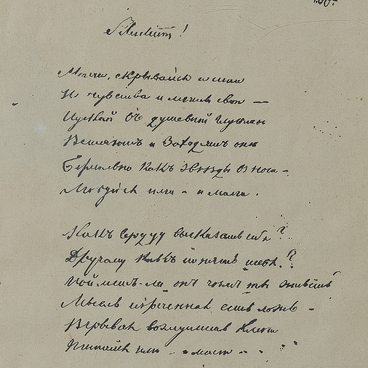 Silentium!
Молчи, скрывайся и таи
И чувства и мечты свои —
Пускай въ душевной глубинѣ
Встаютъ и заходятъ онѣ
Безмолвно какъ звезды въ ночи –
Любуйся ими – и молчи.
Какъ сердцу высказать себя?
Другому какъ понять тебя?
Пойметъ-ли онъ чѣмъ ты живешь
Мысль изреченная есть ложь –
Взрывая возмутишь ключи
Питайся ими – и молчи –